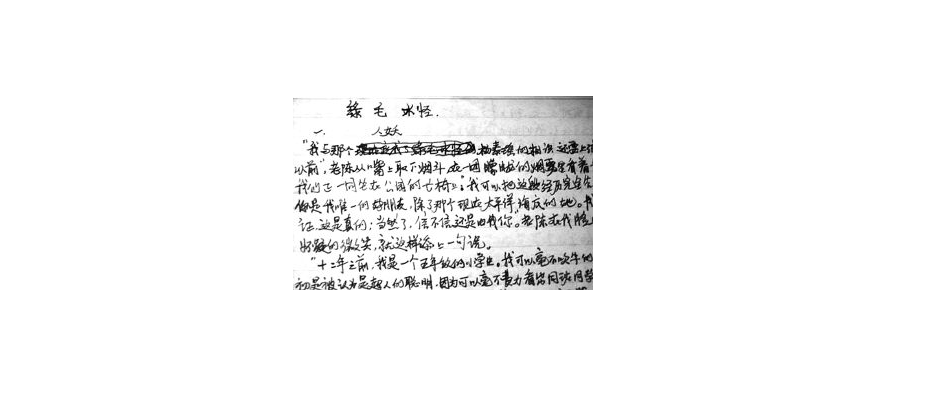 绿毛水怪.
一. 人妖
"我与那个杨素瑶的相识还要上
以前",老陈从嘴上取下烟斗,在一团朦胧的烟雾里看着
我们正一同坐在公园的长椅上,"我可以把这段经历完全
你是我唯一的好朋友,除了那个现在太平洋海底的她。我
证,这是真的;当然了,信不信还是由我你。"老陈在我脸
怀疑的微笑,就这样添上一句说。
"十二年之前,我是一个五年级的小学生。我可以毫不吹牛的
初是被认为是超人的聪明,因为可以毫不费力看出同班同学